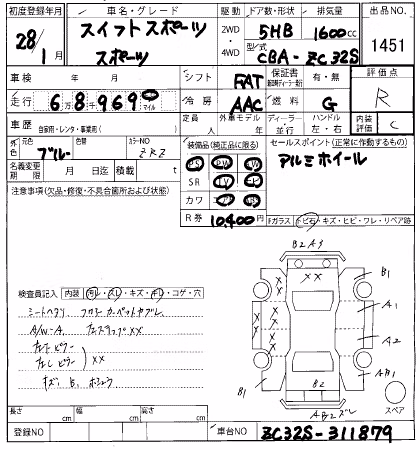 初度登録年月 車名・グレード 駆動 ドア数・形状 排気量 出品NO
28年 1月 スイフトスポーツ 2WD 5HB 1600cc 1451
スポーツ 4WD 型式 CBA-ZC32S
車検 年 月 シフト FAT 保証書 有・無 評価点
走行 6万8千969 マイル 冷房 AAC 燃料 G R
車歴 自家用・レンタ・事業用( ) 定員 人 外車モデル 年 ディーラー・並行 ハンドル 左・右 内装評価 C
外色 元色 ブルー 色替 カラーNO ZRZ 装備品(純正品に限る) セールスポイント(正常に作動するもの)
名義変更期限 月 日迄 積載 t PS PW アルミホイール
注意事項(欠品・修復・不具合箇所および状態) SR
カワ
R券 10,400円 Fガラス トビ石・キズ・ヒビ・ワレ・リペア跡
検査員記入 内装 汚レ・スレ・キズ・キレ・コゲ・穴
シートヘタリ フロアーカーペットヤブレ
A/W-A 左ステップ××
××
キズ
B2 A3
××
B1
A1
A2
AB1
B1
B2
AB2ズレ
スペア
長さ cm 幅 cm 高さ cm
登録NO 車台NO ZC32S-311879